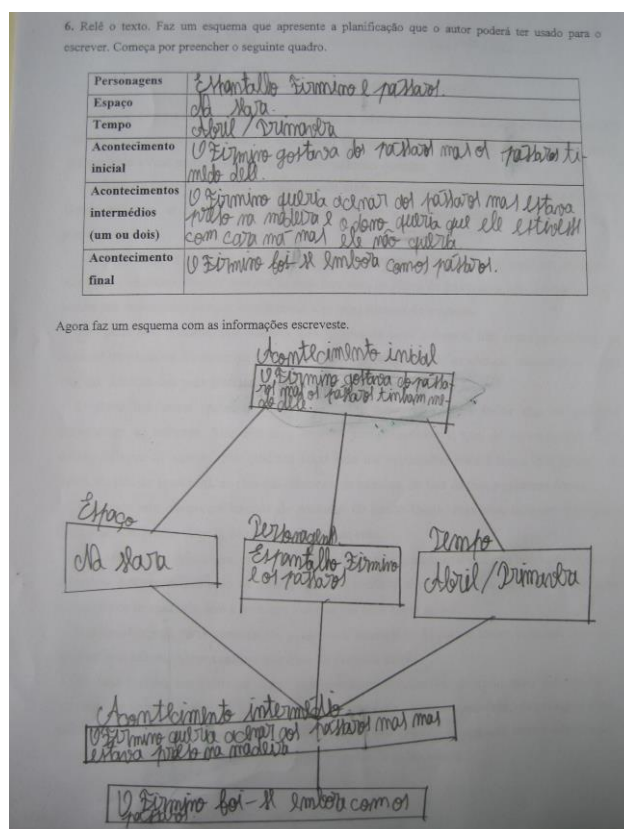 6. Relê o texto. Faz um esquema que apresente a planificação que o autor poderá ter usado para o
escrever. Começa por preencher o seguinte quadro.
Personagens Espantalho Firmino e pássaros.
Espaço Na seara.
Tempo Abril / Primavera
Acontecimento O Firmino gostava dos pássaros mas os pássaros ti-
inicial medo dele.
Acontecimentos O Firmino queria acenar aos pássaros mas estava
intermédios preso na madeira e o dono queria que ele estivesse
(um ou dois) com cara má mas ele não queria
Acontecimento O Firmino foi-se embora com os pássaros.
final
Agora faz um esquema com as informações escreveste.
Acontecimento inicial
O Firmino gostava do pássa-
ros mas os pássaros tinham me-
do dele.
Espaço
Na seara
Personagens
Espantalho, Firmino
e os pássaros
Tempo
Abril / Primavera
Acontecimento intermédio
O Firmino queria acenar aos pássaros mas mas
estava preso na madeira
O Firmino foi-se embora com os
pássaros.